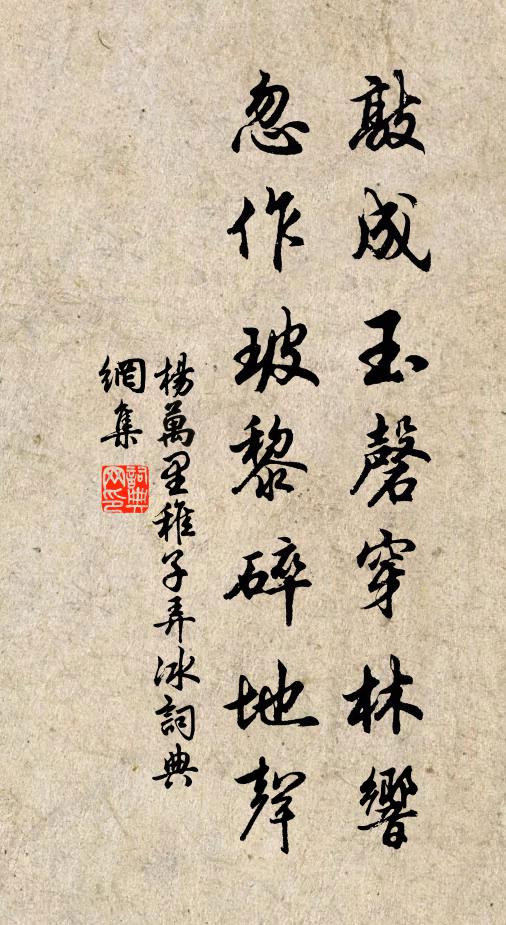 敲成玉磬穿林響
忽作玻黎碎地聲
楊萬里稚子弄冰詞典
網集
詞典
网印